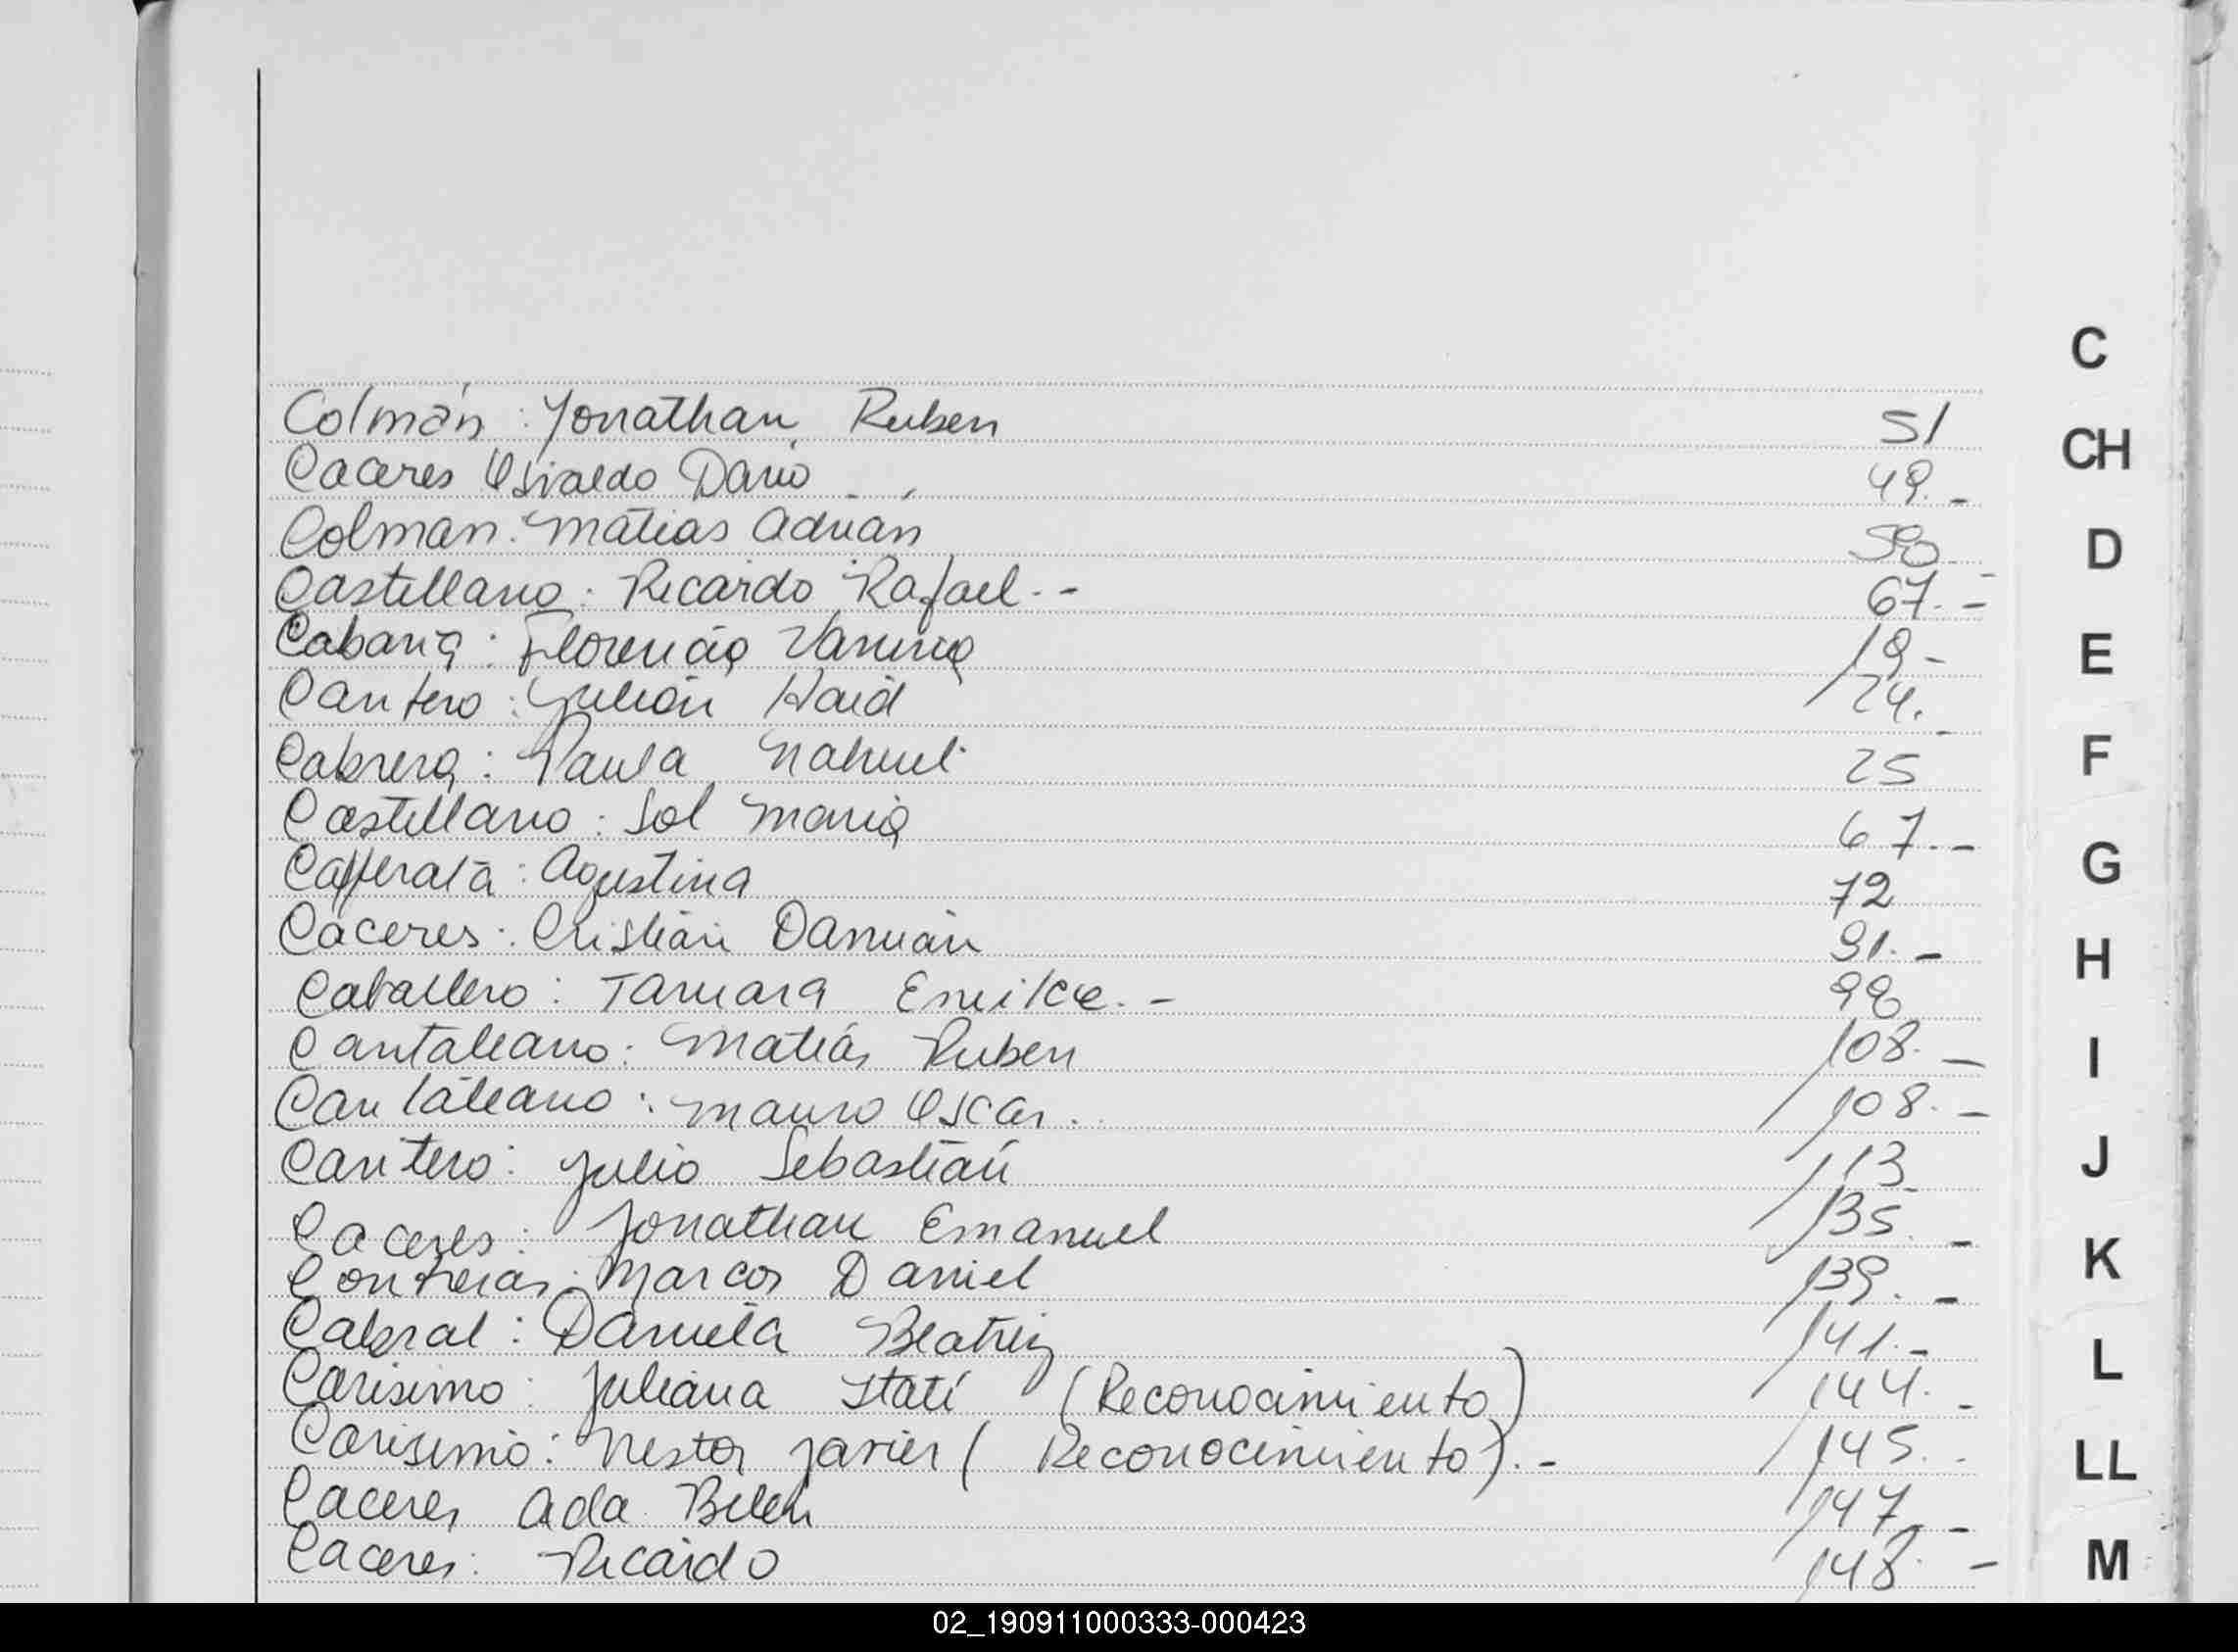 C
Colmán: Jonathan Ruben 51
CH
Caceres Osvaldo Dario 49.-
Colman: Matias Adrián 50
D
Castellano: Ricardo Rafael.- 67.-
Cabaña: Florencia Vanina 19-
E
Cantero: Julián Haid 24.-
Cabrera: Paula Nahuel 25
F
Castellano: Sol Maria 67.-
Cafferata: Agustina 72
G
Caceres: Cristián Damián 91.-
H
Caballero: Tamara Emilce.- 99
Cantaleano: Matiás Ruben 108.-
I
Cantaleano: Mauro Oscar. 108.-
Cantero: Julio Sebastián 113
J
Caceres: Jonathan Emanuel 135.-
K
Contreras: Marcos Daniel 139.-
Cabral: Daniela Beatriz 141.-
L
Carisimo: Juliana Itatí (Reconocimiento) 144.-
Carisimo: Nestor Javier (Reconocimiento).- 145.-
LL
Caceres Ada Belen 147.-
Caceres: Ricardo 148.-
M
02_190911000333-000423